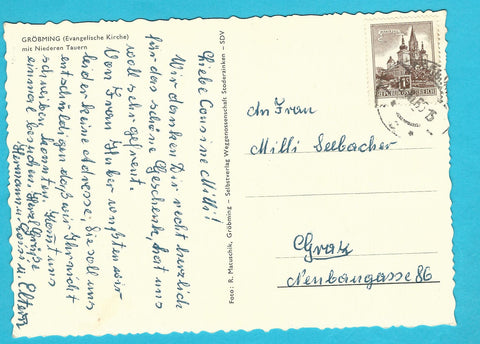 GRÖBMING (Evangelische Kirche)
mit Niederen Tauern
Liebe Cousine Milli!
Wir danken Dir recht herzlich
für das schöne Geschenk, hat uns
voll sehr gefreut.
Von Frau Huber wußten wir
leider keine Adresse, sie soll uns
entschuldigen daß wir Ihr nicht
schreiben konnten. Kommt uns
einmal besuchen. Herzl. Grüße
Hermann u. Luise u. Eltern
Foto: R. Matuschik, Gröbming – Selbstverlag Waggenossenschaft Stoderzinken – SDV
REPUBLIK ÖSTERREICH
An Frau
Milli Seebacher
Graz
Neubaugasse 86